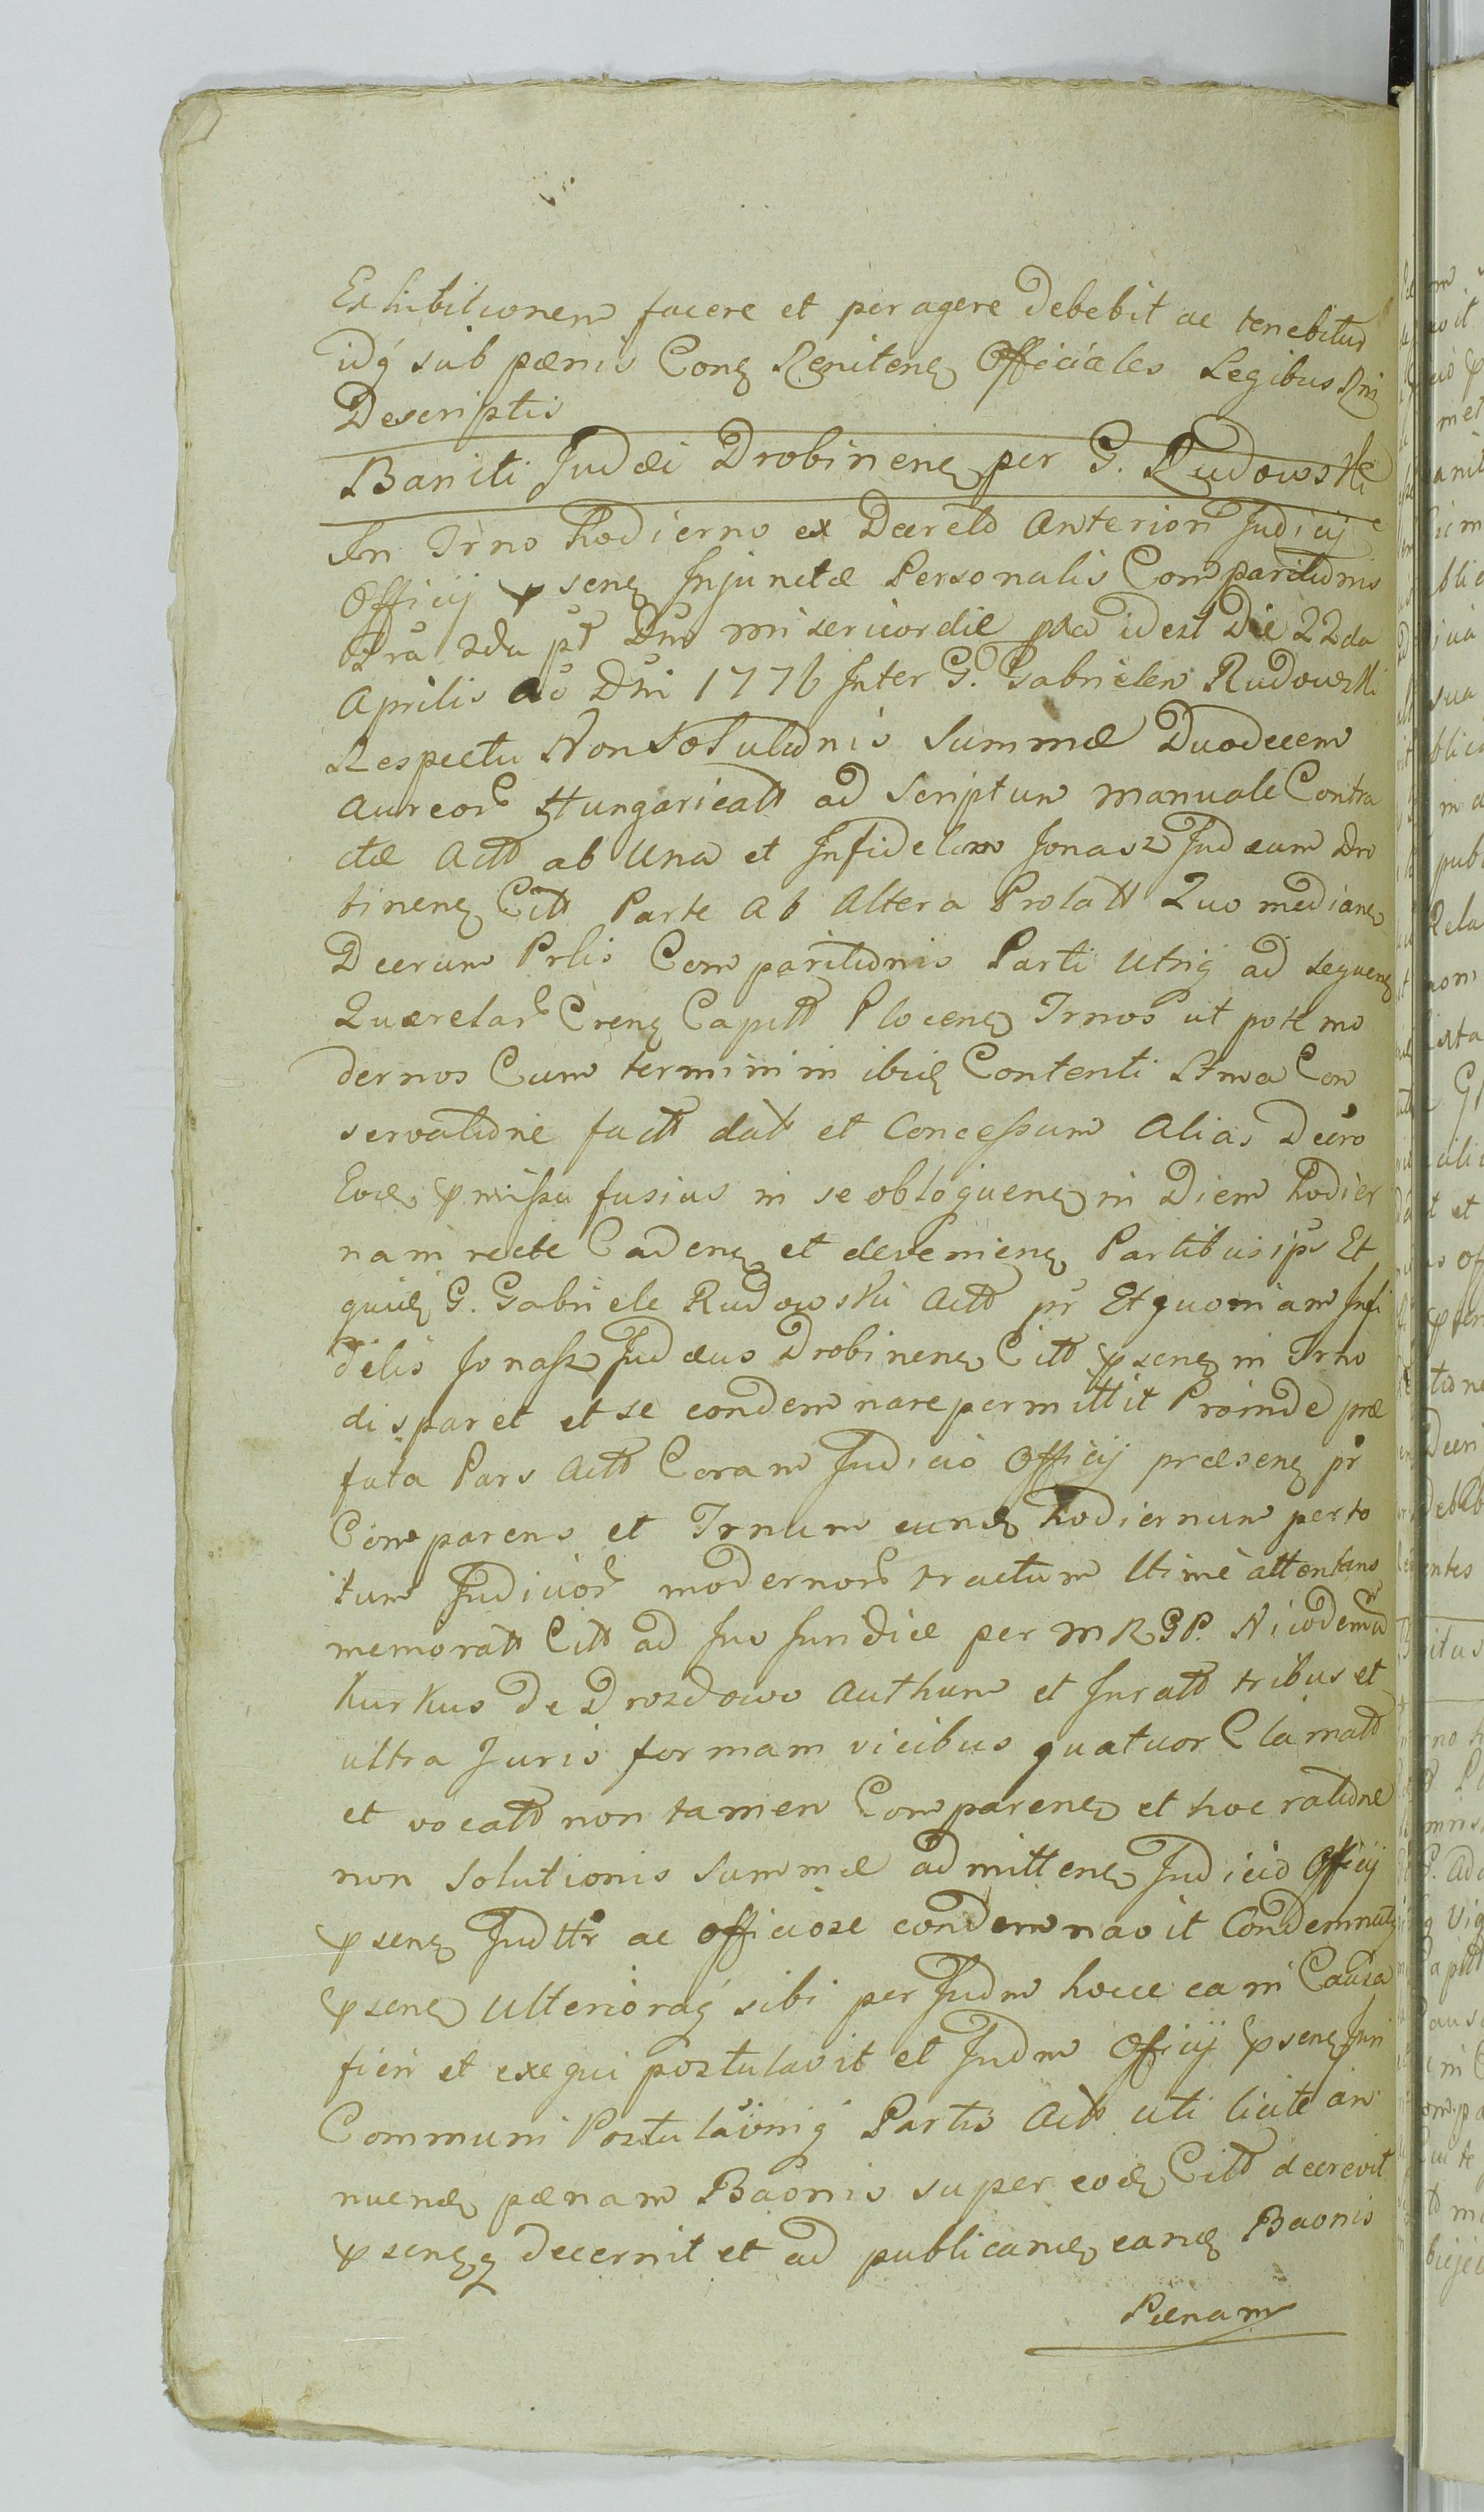 Exhibitionem facere et peragere Debebit ac tenebitur
idq́ sub pænis Conq Renitenq Officiales Legibus Rni
Descriptis
Baniti Judæi Drobinenq per G. Rudowski
In Trno hodierno ex Decreto Anteriori Judicij
Officij psenq Injunctæ Personalis Comparitionis
Fra 2da pt Dnm misericordiæ idest Die 22da
Aprilis Ao Dni 1776 Inter G. Gabrielem Rudowski
Respectu Non Solutionis Summæ Duodecem
Aureor Hungaricatt ad Scriptum manuale Contra
ctæ Actt ab Una et Infidelem Jonasz Judæum Dro
binenq Citt Parte Ab Altera Prolatt Quo medianq
Decrum Prlis Comparitionis Parti Utriq́ ad sequenq
Querelar Crenq Capitt Plocenq Trnos ut pote mo
dernos Cum termini in ibiq Contenti Con
servatione factt datt et Concessum Alias Decro
Eoq pmissa fusius in se obloquenq in Diem hodier
nam recte Cadenq et devenienq Partibus ips Et
quiq G. Gabriele Rudowski Actt pr Et quoniam Infi
delis Jonasz Judæus Drobinenq Citt psenq in Trno
disparet et se condemnare permittit Proinde præ
fata Pars Actt Coram Judicio Officij præsenq pr
Comparens et Trnum eunq hodiernum per to
tum Judicior modernor tractum ltime attentans
memoratt Citt ad Jus Juridice per M R G P. Nicodemum
Kurkus De Drozdowo Authum et Juratt tribus et
ultra Juris formam vicibus quatuor Clamatt
et vocatt non tamen Comparenq et hoc ratione
non Solutionis Summæ admittenq Judicio Officij
psenq Judttr ac officiose condemnavit Condemnatq
psenq Ulterioraq́ sibi per Judm hocce ea in Causa
fieri et exequi postulavit et Judm Officij psenq Juri
Communi Postulaoniq́ Partis Actt uti licite an
nuenq pænam Baonis super eoq Citt decrevit
psenqq decernit et ad publicanq eanq Baonis
Pænam